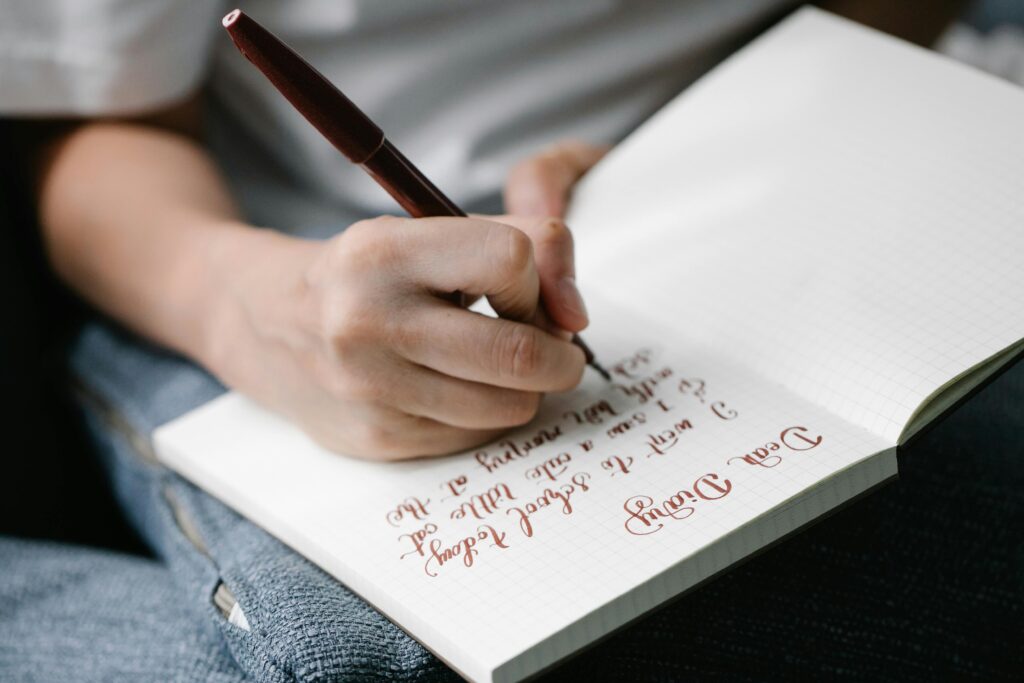 Dear Diary
I went to school today
& I saw a cute little cat
with her mommy at the